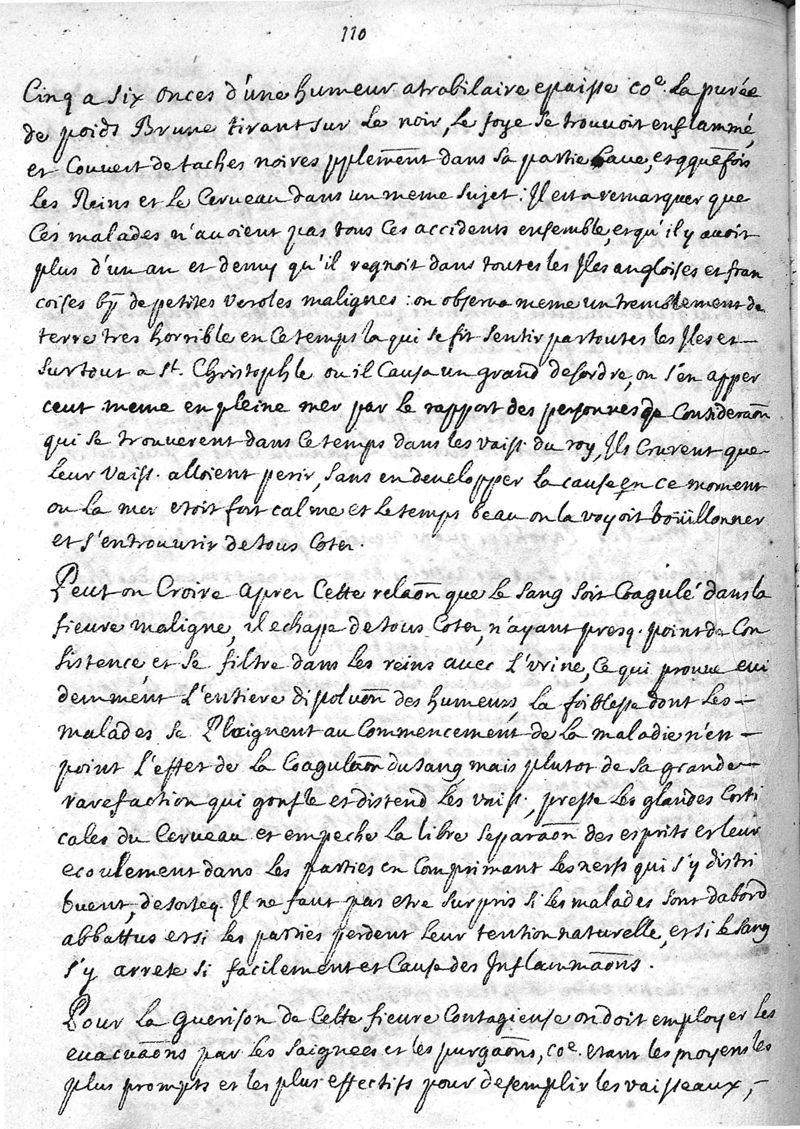 110
Cinq a six onces d'une humeur atrabilaire epaisse coe. la purée
de poids Brune tirant sur le noir, le foye se trouvoit enflammé,
et Couvert de taches noires pplement dans sa partie Cave, et qquefois
les Reins et le Cerveau dans un meme sujet. Il est a remarquer que
Ces malades n'avoient pas tous Ces accidents ensemble, et qu'il y avoit
plus d'un an et demy qu'il regnoit dans toutes les Iles angloises et fran
coises bp de petites veroles malignes : on observa meme un tremblement de
terre tres horrible en Ce temps la qui se fit sentir par toutes les Iles et
surtout a St. Christophle ou il Causa un grand desordre, on s'en apper
ceut meme en pleine mer par le rapport des personnes de Consideraōn
qui se trouverent dans Ce temps dans les vaiss. du roy, Ils Crurent que
leur vaiss. alloient perir, sans en developper la cause, en ce moment
ou la mer etoit fort calme et le temps beau on la voyoit boüillonner
et s'entrouvrir de tous Coter.
Peut on Croire aprer Cette relaōn que le sang soit Coagulé dans la
fievre maligne, il echape de tous Coter, n'ayant presq. point de Con
sistence et se filtre dans les reins avec l'vrine, Ce qui prouve evi
demment l'entiere dissoluōn des humeurs, la foiblesse dont les
malades se Plaignent au Commencement de la maladie n'en
point l'effet de la Coagulaōn du sang, mais plutot de sa grande
rarefaction qui gonfle et distend les vaiss., presse les glandes Corti
cales du Cerveau et empeche la libre separaōn des esprits et leur
ecoulement dans les parties en Comprimant les nerfs qui s'y distri
buent, de sorteq. Il ne faut pas etre surpris si les malades sont dabord
abbattus et si les parties perdent leur tention naturelle, et si le sang
s'y arrete si facilement et Cause des Inflammaōns.
Pour la guerison de Cette fievre Contagieuse on doit employer les
evacuaōns par les saignées et les purgaōns, coe. etant les moyens les
plus prompts et les plus effectifs pour desemplir les vaisseaux,